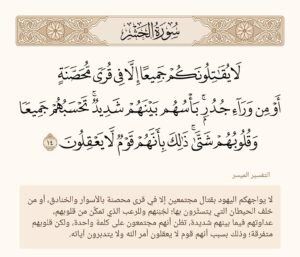 سُورَةُ الحَشْرِ
لَا يُقَٰتِلُونَكُمْ جَمِيعًا إِلَّا فِى قُرًى مُّحَصَّنَةٍ
أَوْ مِن وَرَآءِ جُدُرٍۭ ۚ بَأْسُهُم بَيْنَهُمْ شَدِيدٌ ۚ تَحْسَبُهُمْ جَمِيعًا
وَقُلُوبُهُمْ شَتَّىٰ ۚ ذَٰلِكَ بِأَنَّهُمْ قَوْمٌ لَّا يَعْقِلُونَ ١٤
التفسير الميسر
لا يواجهكم اليهود بقتال مجتمعين إلا في قرى محصنة بالأسوار والخنادق، أو من
خلف الحيطان التي يتستَّرون بها؛ لجُبنهم وللرعب الذي تمكَّن من قلوبهم،
عداوتهم فيما بينهم شديدة، تظن أنهم مجتمعون على كلمة واحدة، ولكن قلوبهم
متفرقة؛ وذلك بسبب أنهم قوم لا يعقلون أمر الله ولا يتدبرون آياته.